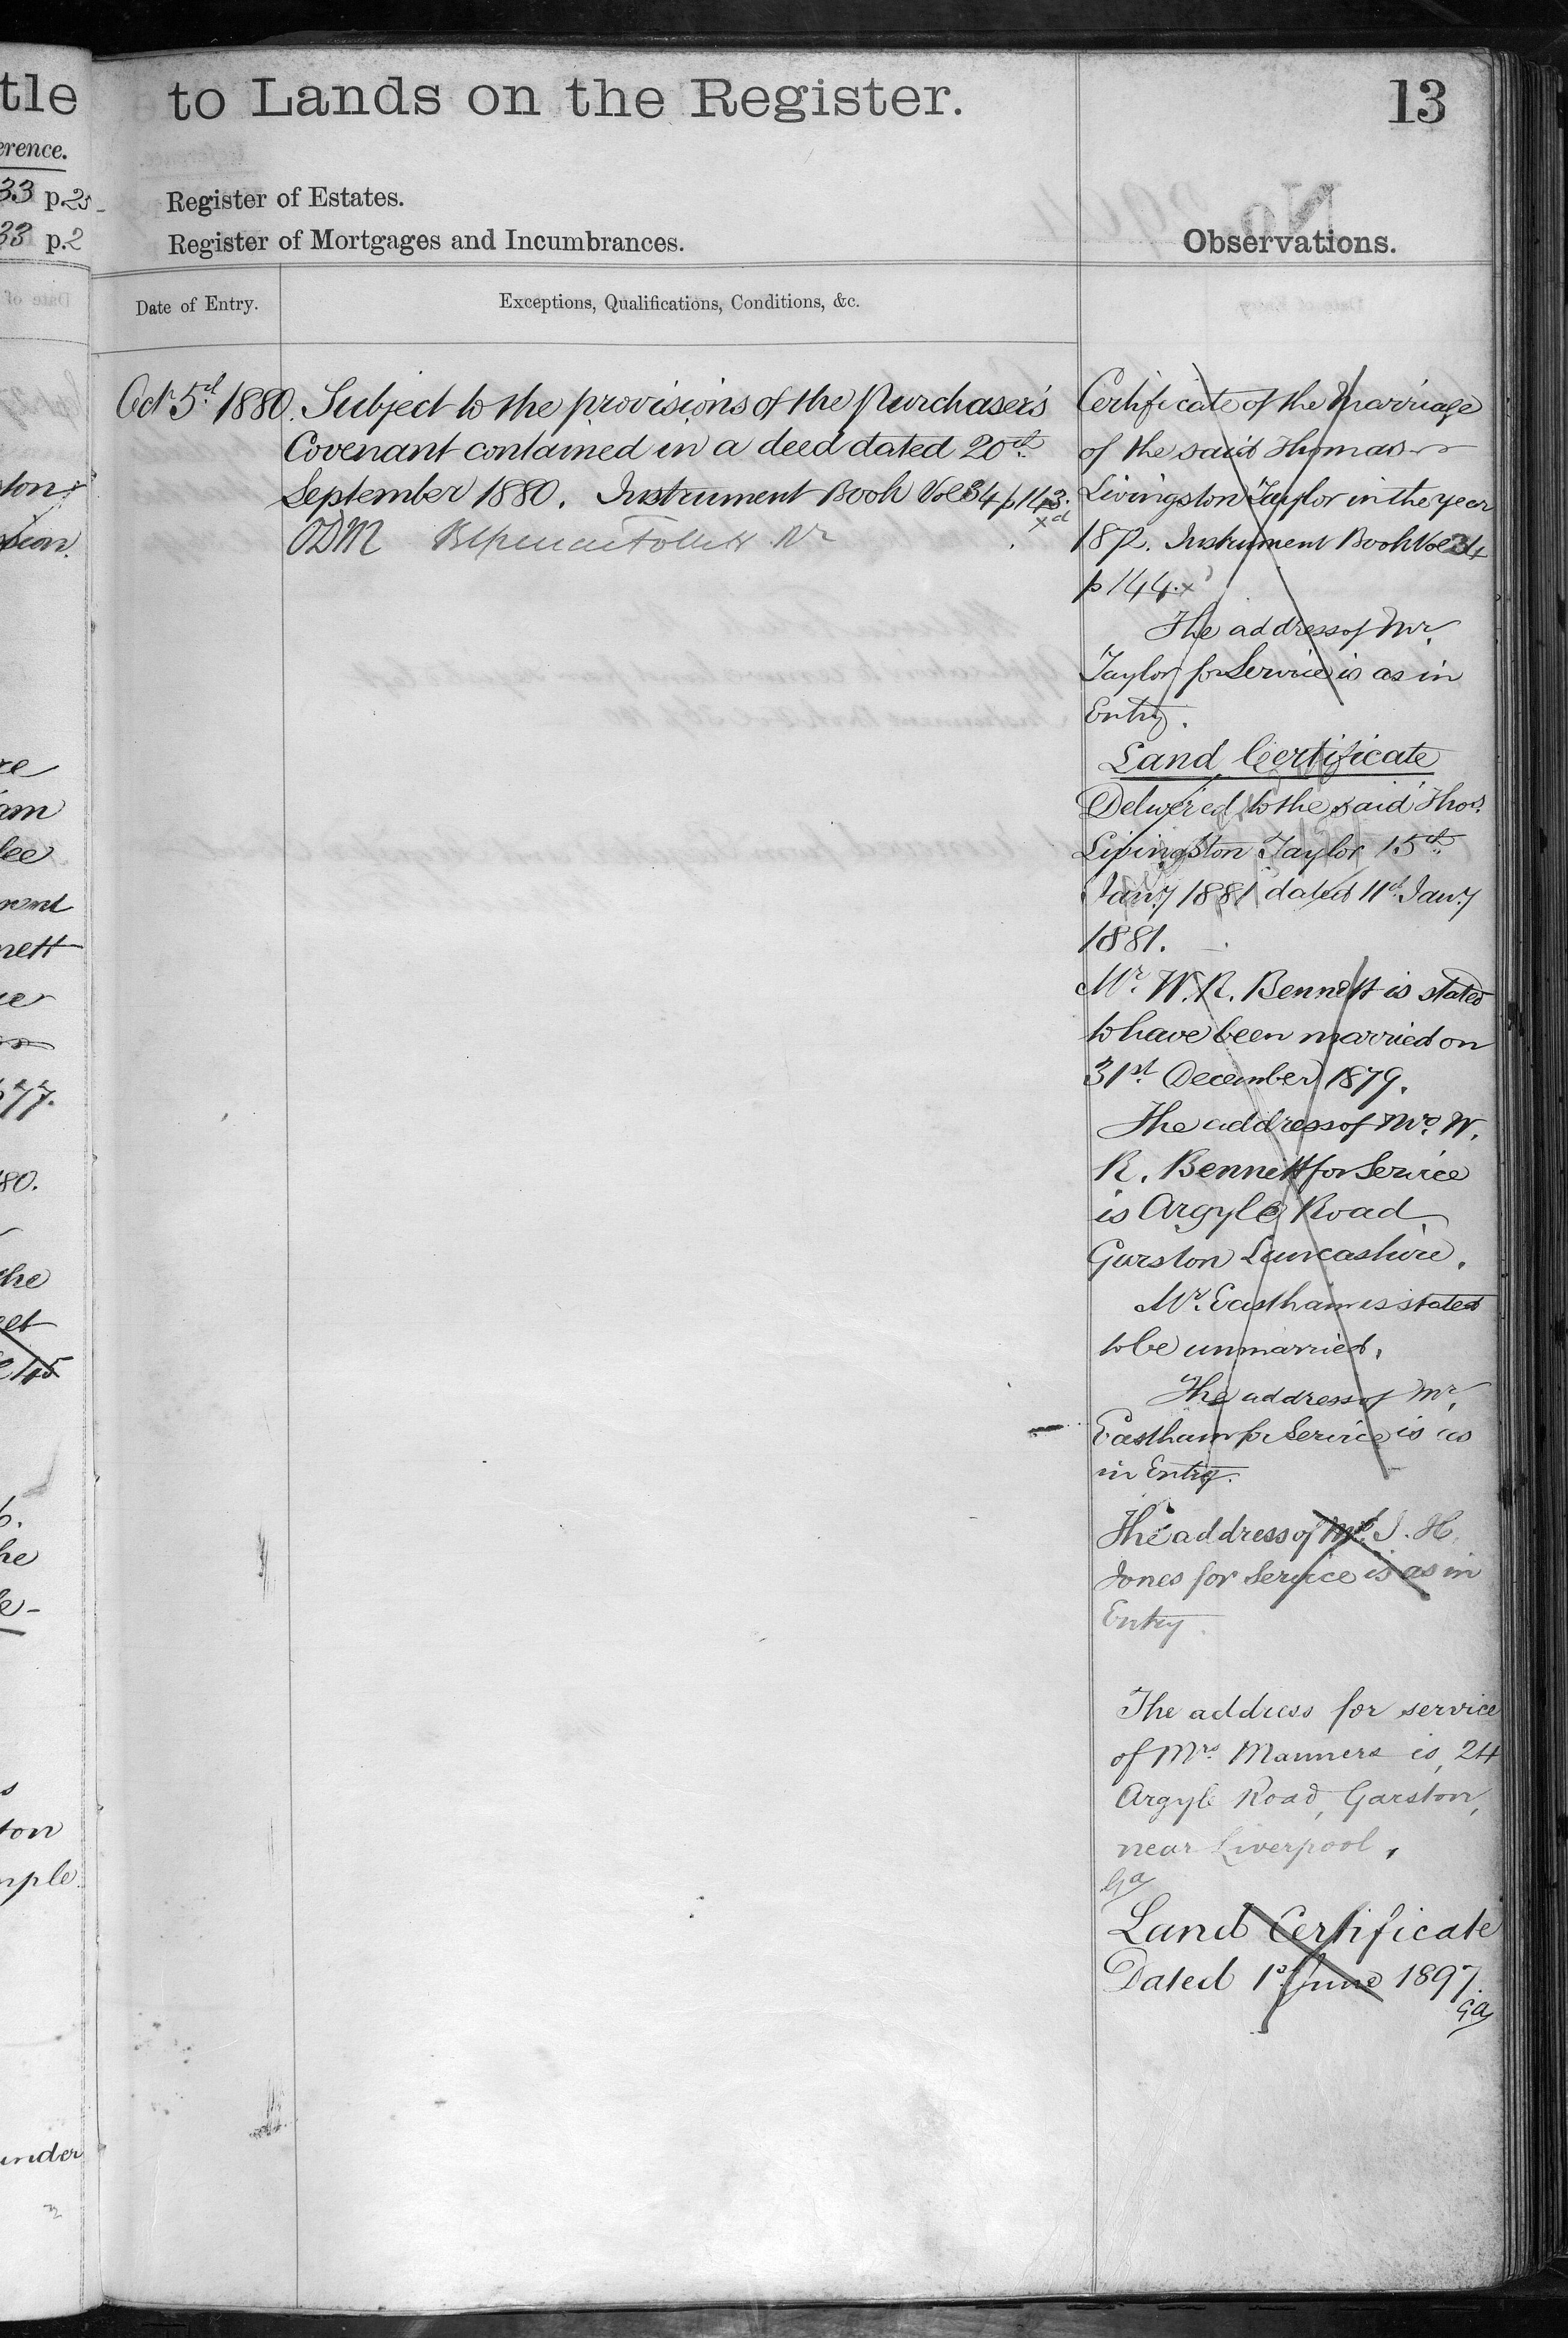 to Lands on the Register.
13
Register of Estates.
Register of Mortgages and Incumbrances.
Observations.
Date of Entry.
Exceptions, Qualifications, Conditions, &c.
Oct 5th 1880. Subject to the provisions of the Purchaser's
Covenant contained in a deed dated 20th
September 1880. Instrument Book Vol 34 p 143.
xd
ODM
Certificate of the Marriage
of the said Thomas
Livingston Taylor in the year
187. Instrument Book Vol 34
p 144. x
The address of Mr.
Taylor for Service is as in
Entry.
Land Certificate
Delivered to the said Thos.
Livingston Taylor 15th
Jany 1881 dated 11th Jany
1881.
Mr. W. R. Bennett is stated
to have been married on
31st December 1879.
The address of Mr. W.
R. Bennett for Service
is Argyle Road
Garston Lancashire.
Mr. Eastham is stated
to be unmarried.
The address of Mr.
Eastham for Service is as
in Entry.
The address of Mr. J. H.
Jones for Service is as in
Entry.
The address for service
of Mrs Manners is, 24
Argyle Road, Garston,
near Liverpool.
Ga
Land Certificate
Dated 1st June 1897.
Ga
tle
erence.
33 p.25
33 p.2
ston
re
am
lee
nett
he
177.
80.
the
eet
45
he
ton
mple
under